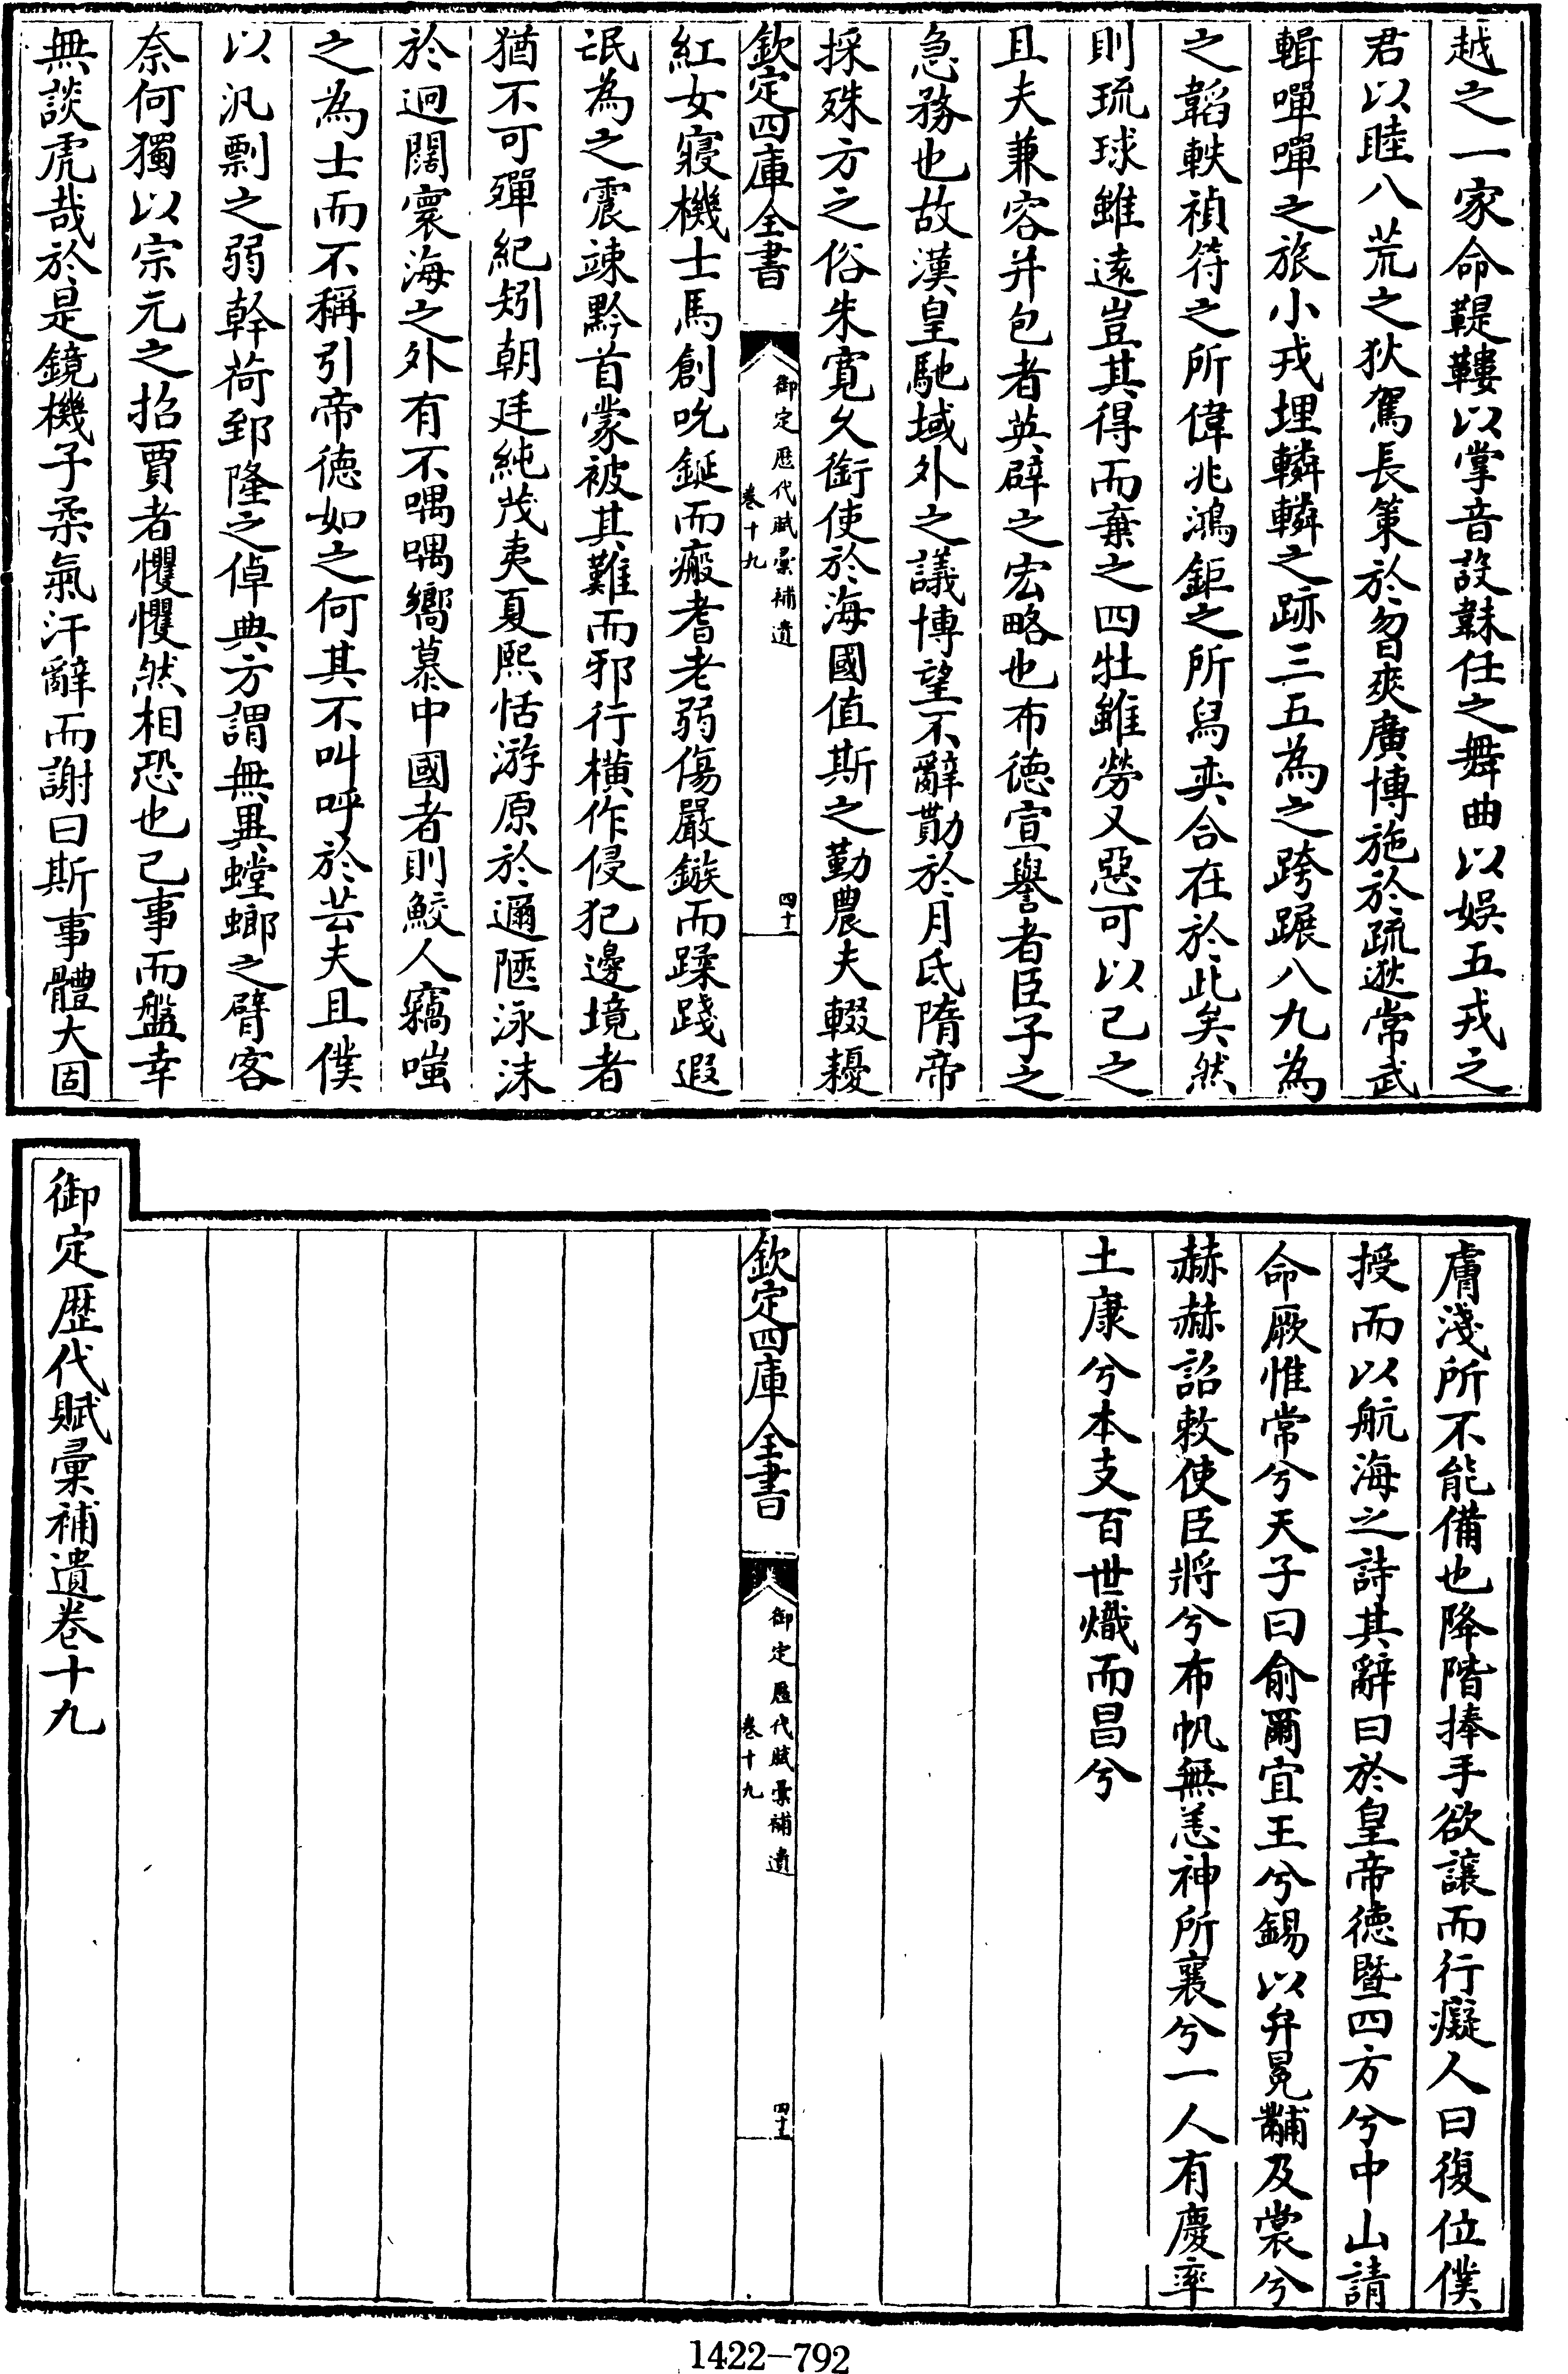 越之一家命鞮鞻以掌音設韎任之舞曲以娛五戎之
君以睦八荒之狄駕長策於曶爽廣博施於疏逖常武
輯嘽嘽之旅小戎埋轔轔之跡三五為之跨蹍八九為
之韜軼禎符之所偉兆鴻鉅之所舄奕合在於此矣然
則琉球雖逺豈其得而棄之四牡雖勞又惡可以已之
且夫兼容并包者英辟之宏略也布徳宣譽者臣子之
急務也故漢皇馳域外之議博望不辭勩於月氏隋帝
採殊方之俗朱寛久銜使於海國值斯之勤農夫輟耰
欽定四庫全書
御定歴代賦彙補遺
卷十九
四十
紅女寢機士馬創吮鋋而瘢耆老弱傷嚴鏃而蹂踐遐
氓為之震竦黔首蒙被其難而邪行橫作侵犯邊境者
猶不可殫紀矧朝廷純茂夷夏熙恬游原於邇陿泳沫
於迥闊寰海之外有不喁喁嚮慕中國者則鮫人竊嗤
之為士而不稱引帝徳如之何其不叫呼於芸夫且僕
以汎剽之弱幹荷郅隆之倬典方謂無異螳螂之臂客
奈何獨以宗元之招賈者懼懼然相恐也已事而盤幸
無談虎哉於是鏡機子柔氣汗辭而謝曰斯事體大固
膚淺所不能備也降階捧手欲讓而行癡人曰復位僕
授而以航海之詩其辭曰於皇帝徳暨四方兮中山請
命厥惟常兮天子曰俞爾宜王兮錫以弁冕黼及裳兮
赫赫詔敕使臣將兮布帆無恙神所襄兮一人有慶率
土康兮本支百世熾而昌兮
欽定四庫全書
御定歴代賦彙補遺
卷十九
四十
御定歴代賦彙補遺卷十九
1422-792